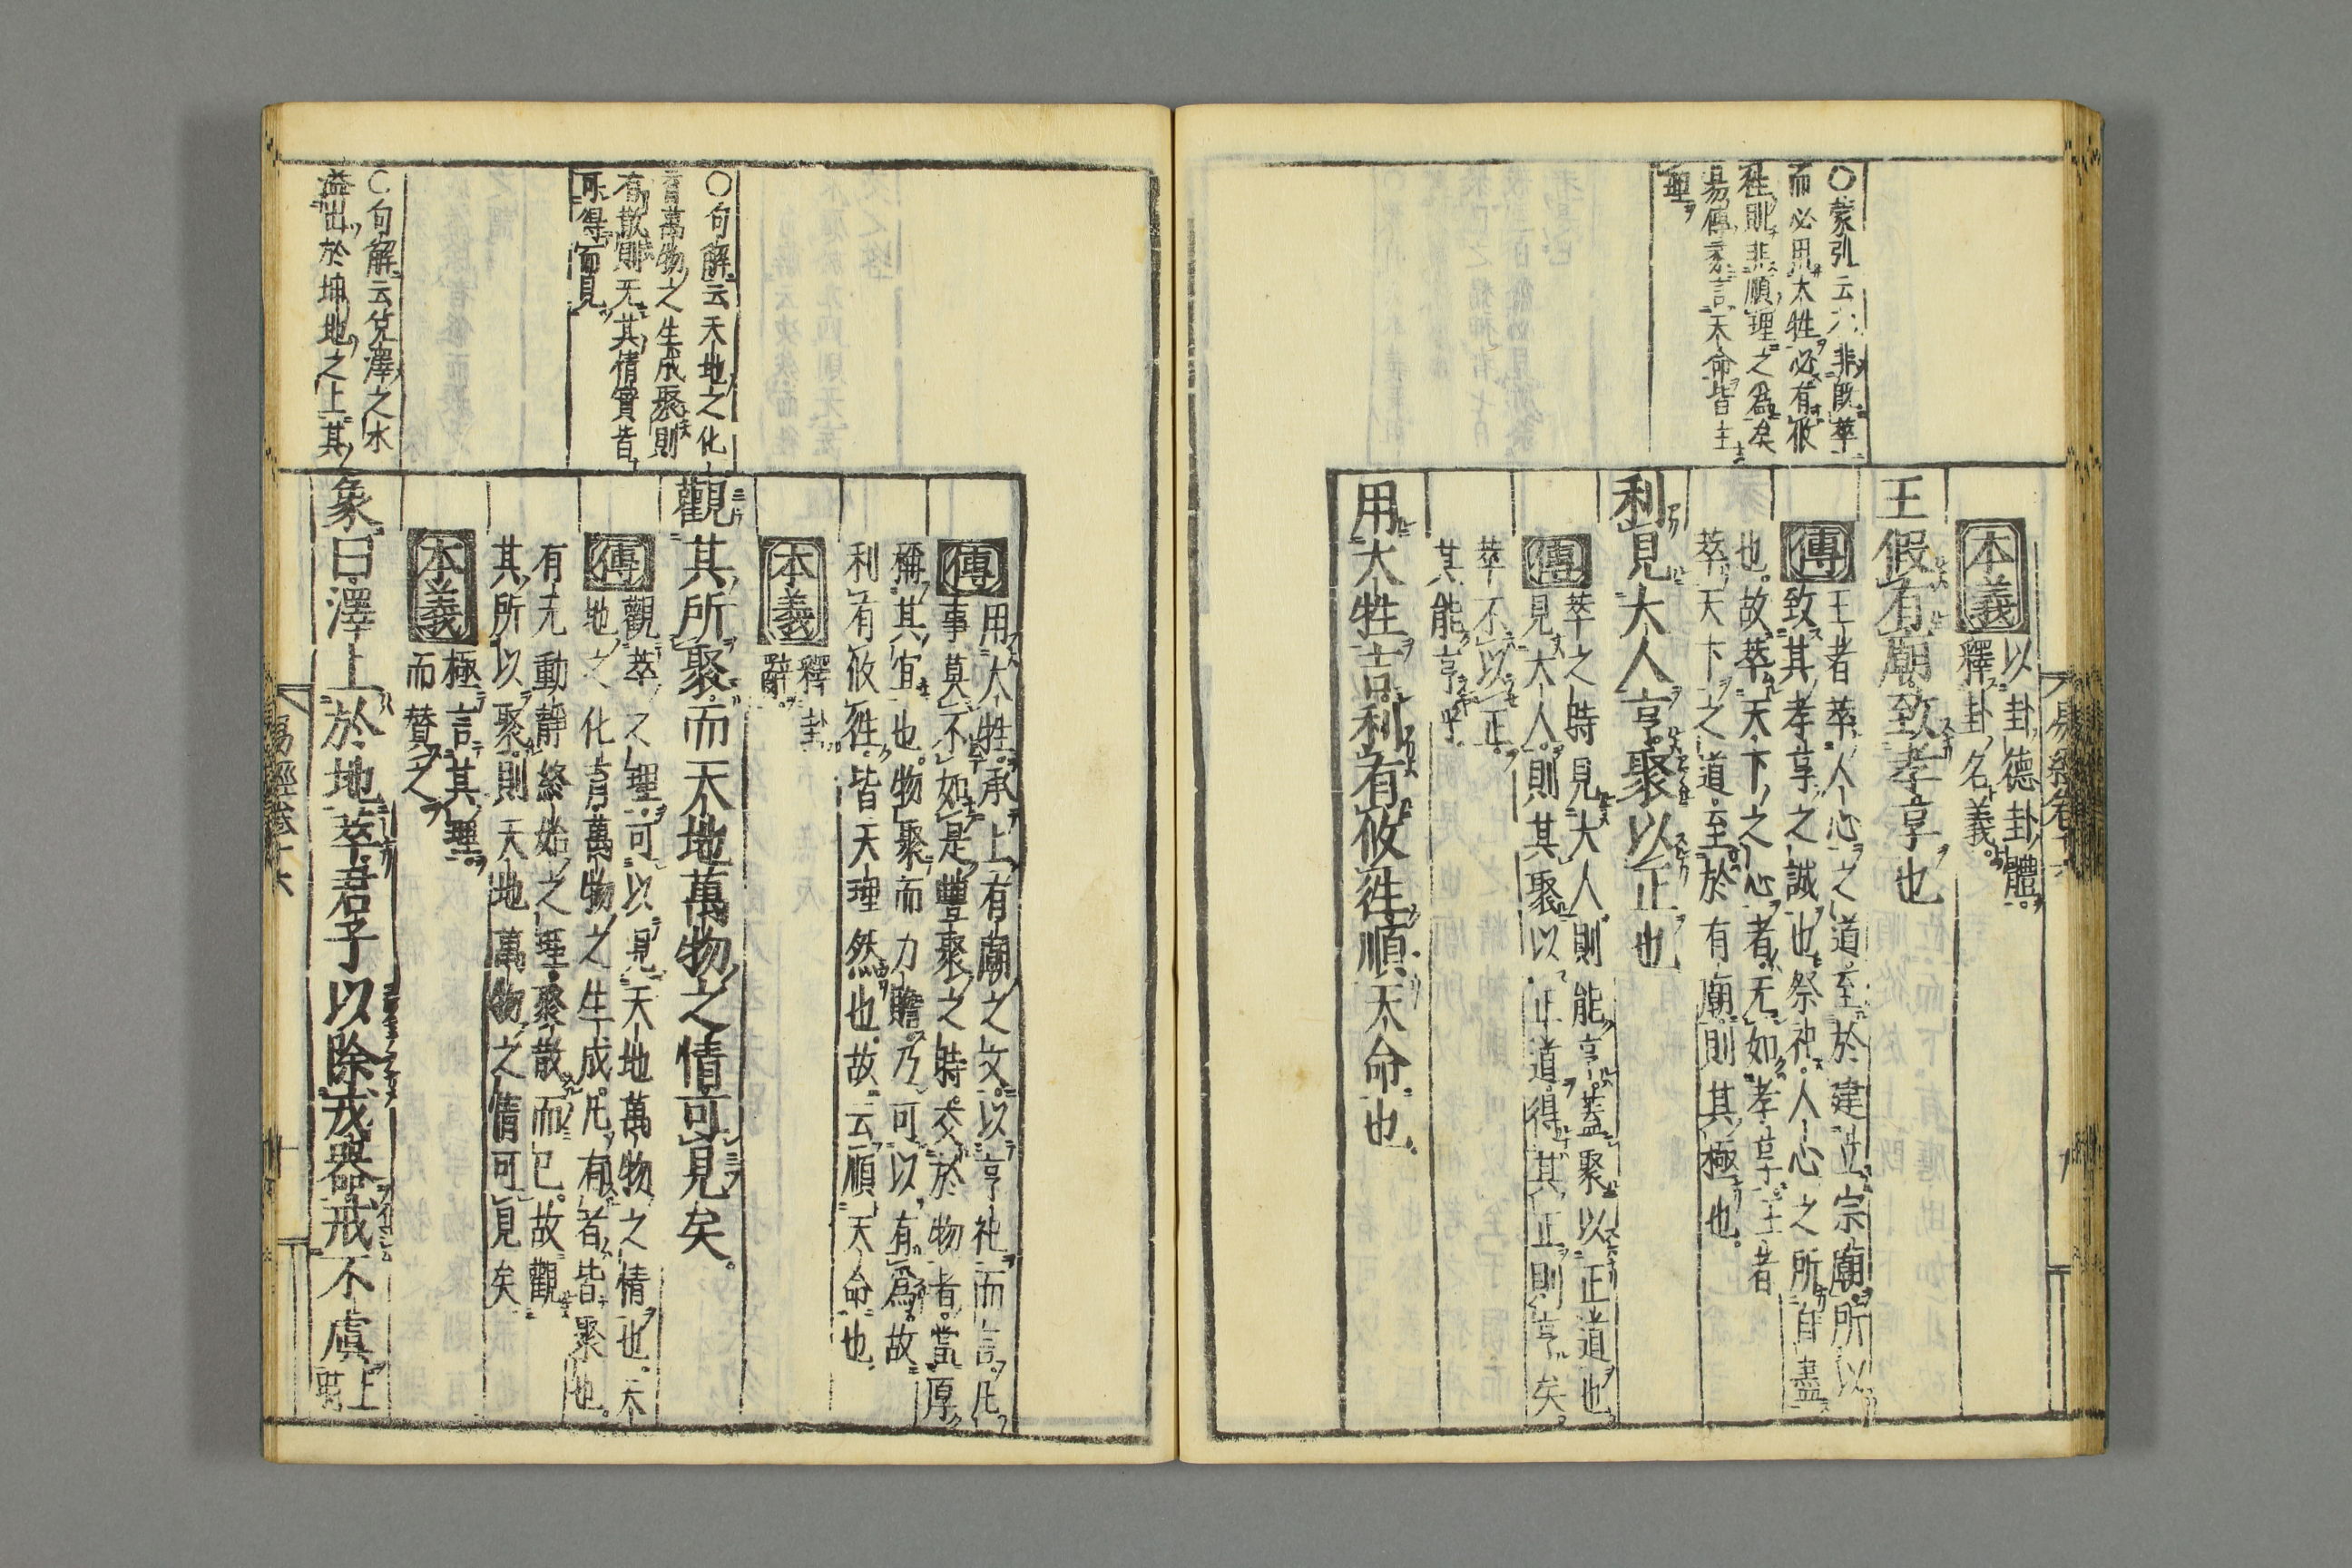 ○蒙引云六非旣萃
而必用大牲必有攸
往則非順理之爲矣
易傳-言天命皆主
理
本義
以卦德卦體
釋卦名義
王假有廟致孝享也
傳
王者萃人心之道至於建立宗廟所以
致其孝享之誠也祭祀人心之所自盡
也故萃天下之心者无如孝享王者
萃天下之道至於有廟則其極也
利見大人亨聚以正也
傳
萃之時見大人則能亨蓋聚以正道也
見大人則其聚以正道得其正則亨矣
萃不以正
其能亨乎
用大牲吉利有攸往順天命也
傳
用大牲承上有廟之文以亨祀而言凡
事莫不如是豐聚之時交於物者當厚
稱其宜也物聚而力贍乃可以有爲故
利有攸往皆天理然也故云順天命也
本義
釋卦
辭
○句解云天地之化
育萬物之生成聚則
有散則无其情實皆
可得而見
觀其所聚而天地萬物之情可見矣
傳
觀萃之理可以見天地萬物之情也天
地之化育萬物之生成凡有者皆聚也
有无動靜終始之理聚散而已故觀
其所以聚則天地萬物之情可見矣
本義
極言其理
而贊之
○句解云兌澤之水
益出於坤地之上其
象曰澤上於地萃君子以除戎器戒不虞上
易經卷十六